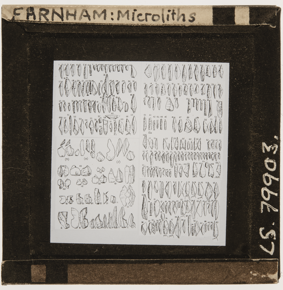 FARNHAM: Microliths
LS 79903.